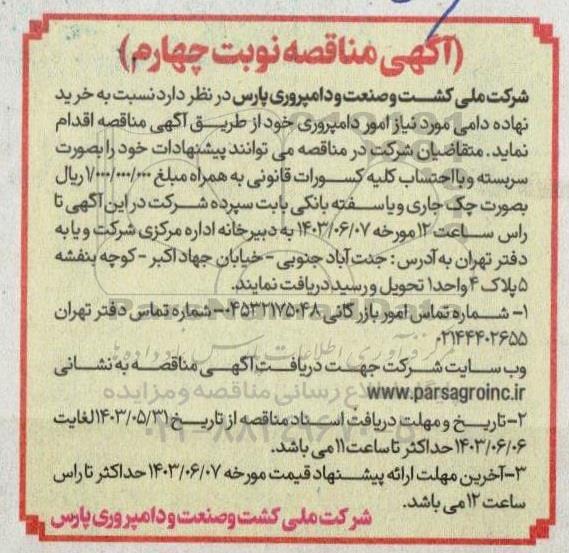 (آگهی مناقصه نوبت چهارم)
شرکت ملی کشت و صنعت و دامپروری پارس در نظر دارد نسبت به خرید
نهاده دامی مورد نیاز امور دامپروری خود از طریق آگهی مناقصه اقدام
نماید. متقاضیان شرکت در مناقصه می توانند پیشنهادات خود را بصورت
سربسته و با احتساب کلیه کسورات قانونی به همراه مبلغ ۱/۰۰۰/۰۰۰/۰۰۰ ریال
بصورت چک جاری و یا سفته بانکی بابت سپرده شرکت در این آگهی تا
راس ساعت ۱۲ مورخه ۱۴۰۳/۰۶/۰۷ به دبیرخانه اداره مرکزی شرکت و یا به
دفتر تهران به آدرس: جنت آباد جنوبی - خیابان جهاد اکبر - کوچه بنفشه
۵ پلاک ۴ واحد ۱ تحویل و رسید دریافت نمایند.
۱- شماره تماس امور بازرگانی ۰۴۵۳۲۱۷۵۰۴۸ - شماره تماس دفتر تهران
۰۲۱۴۴۴۰۲۶۵۵
وب سایت شرکت جهت دریافت آگهی مناقصه به نشانی
www.parsagroinc.ir
۲- تاریخ و مهلت دریافت اسناد مناقصه از تاریخ ۱۴۰۳/۰۵/۳۱ لغایت
۱۴۰۳/۰۶/۰۶ حداکثر تا ساعت ۱۱ می باشد.
۳- آخرین مهلت ارائه پیشنهاد قیمت مورخه ۱۴۰۳/۰۶/۰۷ حداکثر تا راس
ساعت ۱۲ می باشد.
شرکت ملی کشت و صنعت و دامپروری پارس